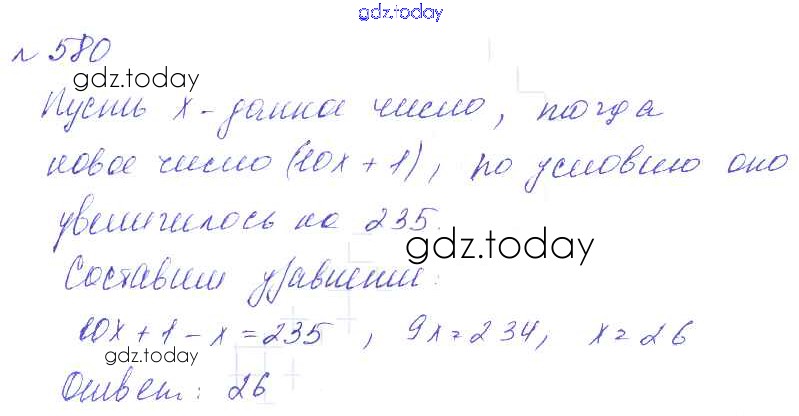 gdz.today
№ 580
gdz.today
Пусть x - данное число, тогда
новое число (10x + 1), по условию оно
увеличилось на 235.
gdz.today
Составим уравнение:
10x + 1 - x = 235, 9x = 234, x = 26
gdz.today
Ответ: 26